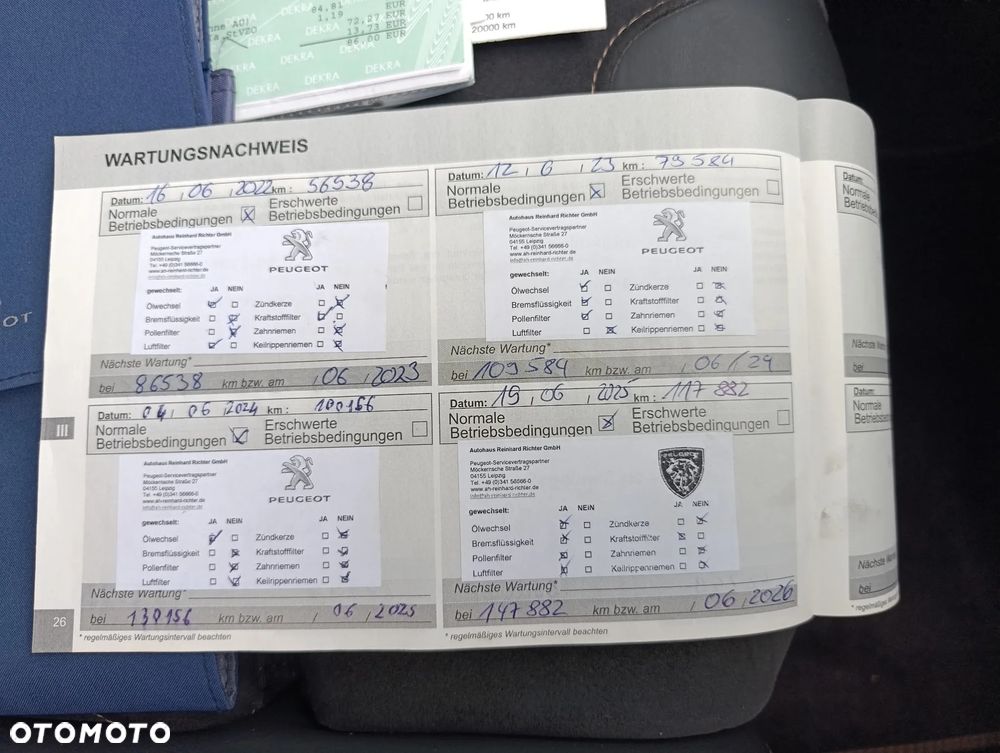 84,81 EUR
1,19
72,27 EUR
13,73 EUR
86,00 EUR
StVZO
DEKRA
DEKRA
DEKRA
DEKRA
DEKRA
DEKRA
00 km
20000 km
WARTUNGSNACHWEIS
Datum: 16, 06, 2022 km: 56538
Normale Betriebsbedingungen
Erschwerte Betriebsbedingungen
Autohaus Reinhard Richter GmbH
Peugeot-Servicevertragspartner
Möckernsche Straße 27
04155 Leipzig
Tel. +49 (0)341 56666-0
www.ah-reinhard-richter.de
info@ah-reinhard-richter.de
PEUGEOT
gewechselt: JA NEIN JA NEIN
Ölwechsel Zündkerze
Bremsflüssigkeit Kraftstofffilter
Pollenfilter Zahnriemen
Luftfilter Keilrippenriemen
Nächste Wartung*
bei 86538 km bzw. am , 06, 2023
Datum: 12, 6, 23 km: 79584
Normale Betriebsbedingungen
Erschwerte Betriebsbedingungen
Autohaus Reinhard Richter GmbH
Peugeot-Servicevertragspartner
Möckernsche Straße 27
04155 Leipzig
Tel. +49 (0)341 56666-0
www.ah-reinhard-richter.de
info@ah-reinhard-richter.de
PEUGEOT
gewechselt: JA NEIN JA NEIN
Ölwechsel Zündkerze
Bremsflüssigkeit Kraftstofffilter
Pollenfilter Zahnriemen
Luftfilter Keilrippenriemen
Nächste Wartung*
bei 109584 km bzw. am , 06/24
III
Datum: 04, 06, 2024 km: 100156
Normale Betriebsbedingungen
Erschwerte Betriebsbedingungen
Autohaus Reinhard Richter GmbH
Peugeot-Servicevertragspartner
Möckernsche Straße 27
04155 Leipzig
Tel. +49 (0)341 56666-0
www.ah-reinhard-richter.de
info@ah-reinhard-richter.de
PEUGEOT
gewechselt: JA NEIN JA NEIN
Ölwechsel Zündkerze
Bremsflüssigkeit Kraftstofffilter
Pollenfilter Zahnriemen
Luftfilter Keilrippenriemen
Nächste Wartung*
bei 130156 km bzw. am , 06, 2025
Datum: 19, 06, 2025 km: 117 882
Normale Betriebsbedingungen
Erschwerte Betriebsbedingungen
Autohaus Reinhard Richter GmbH
Peugeot-Servicevertragspartner
Möckernsche Straße 27
04155 Leipzig
Tel. +49 (0)341 56666-0
www.ah-reinhard-richter.de
info@ah-reinhard-richter.de
PEUGEOT
gewechselt: JA NEIN JA NEIN
Ölwechsel Zündkerze
Bremsflüssigkeit Kraftstofffilter
Pollenfilter Zahnriemen
Luftfilter Keilrippenriemen
Nächste Wartung*
bei 147 882 km bzw. am , 06, 2026
26
* regelmäßiges Wartungsintervall beachten
* regelmäßiges Wartungsintervall beachten
Datum:
Normale
Nächste
bei
Datum:
Normale
Nächste
bei
OTOMOTO